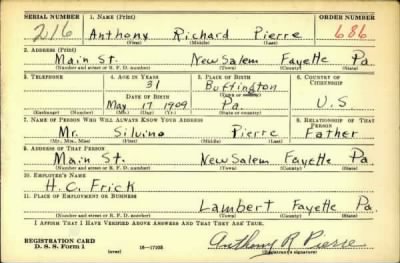 SERIAL NUMBER 1. NAME (Print) ORDER NUMBER
216 Anthony Richard Pierre 686
(First) (Middle) (Last)
2. ADDRESS (Print)
Main St. New Salem Fayette Pa.
(Number and street or R. F. D. number) (Town) (County) (State)
3. TELEPHONE 4. AGE IN YEARS 5. PLACE OF BIRTH 6. COUNTRY OF CITIZENSHIP
31 Buffington
DATE OF BIRTH (Town or county)
May 17 1909 Pa. U.S
(Exchange) (Number) (Mo.) (Day) (Yr.) (State or country)
7. NAME OF PERSON WHO WILL ALWAYS KNOW YOUR ADDRESS 8. RELATIONSHIP OF THAT PERSON
Mr. Silvino Pierre Father
(Mr., Mrs., Miss) (First) (Middle) (Last)
9. ADDRESS OF THAT PERSON
Main St. New Salem Fayette Pa
(Number and street or R. F. D. number) (Town) (County) (State)
10. EMPLOYER'S NAME
H. C. Frick
11. PLACE OF EMPLOYMENT OR BUSINESS
Lambert Fayette Pa.
(Number and street or R. F. D. number) (Town) (County) (State)
I AFFIRM THAT I HAVE VERIFIED ABOVE ANSWERS AND THAT THEY ARE TRUE.
REGISTRATION CARD
D. S. S. Form 1 (over) 16-17105 Anthony R Pierre
(Registrant's signature)